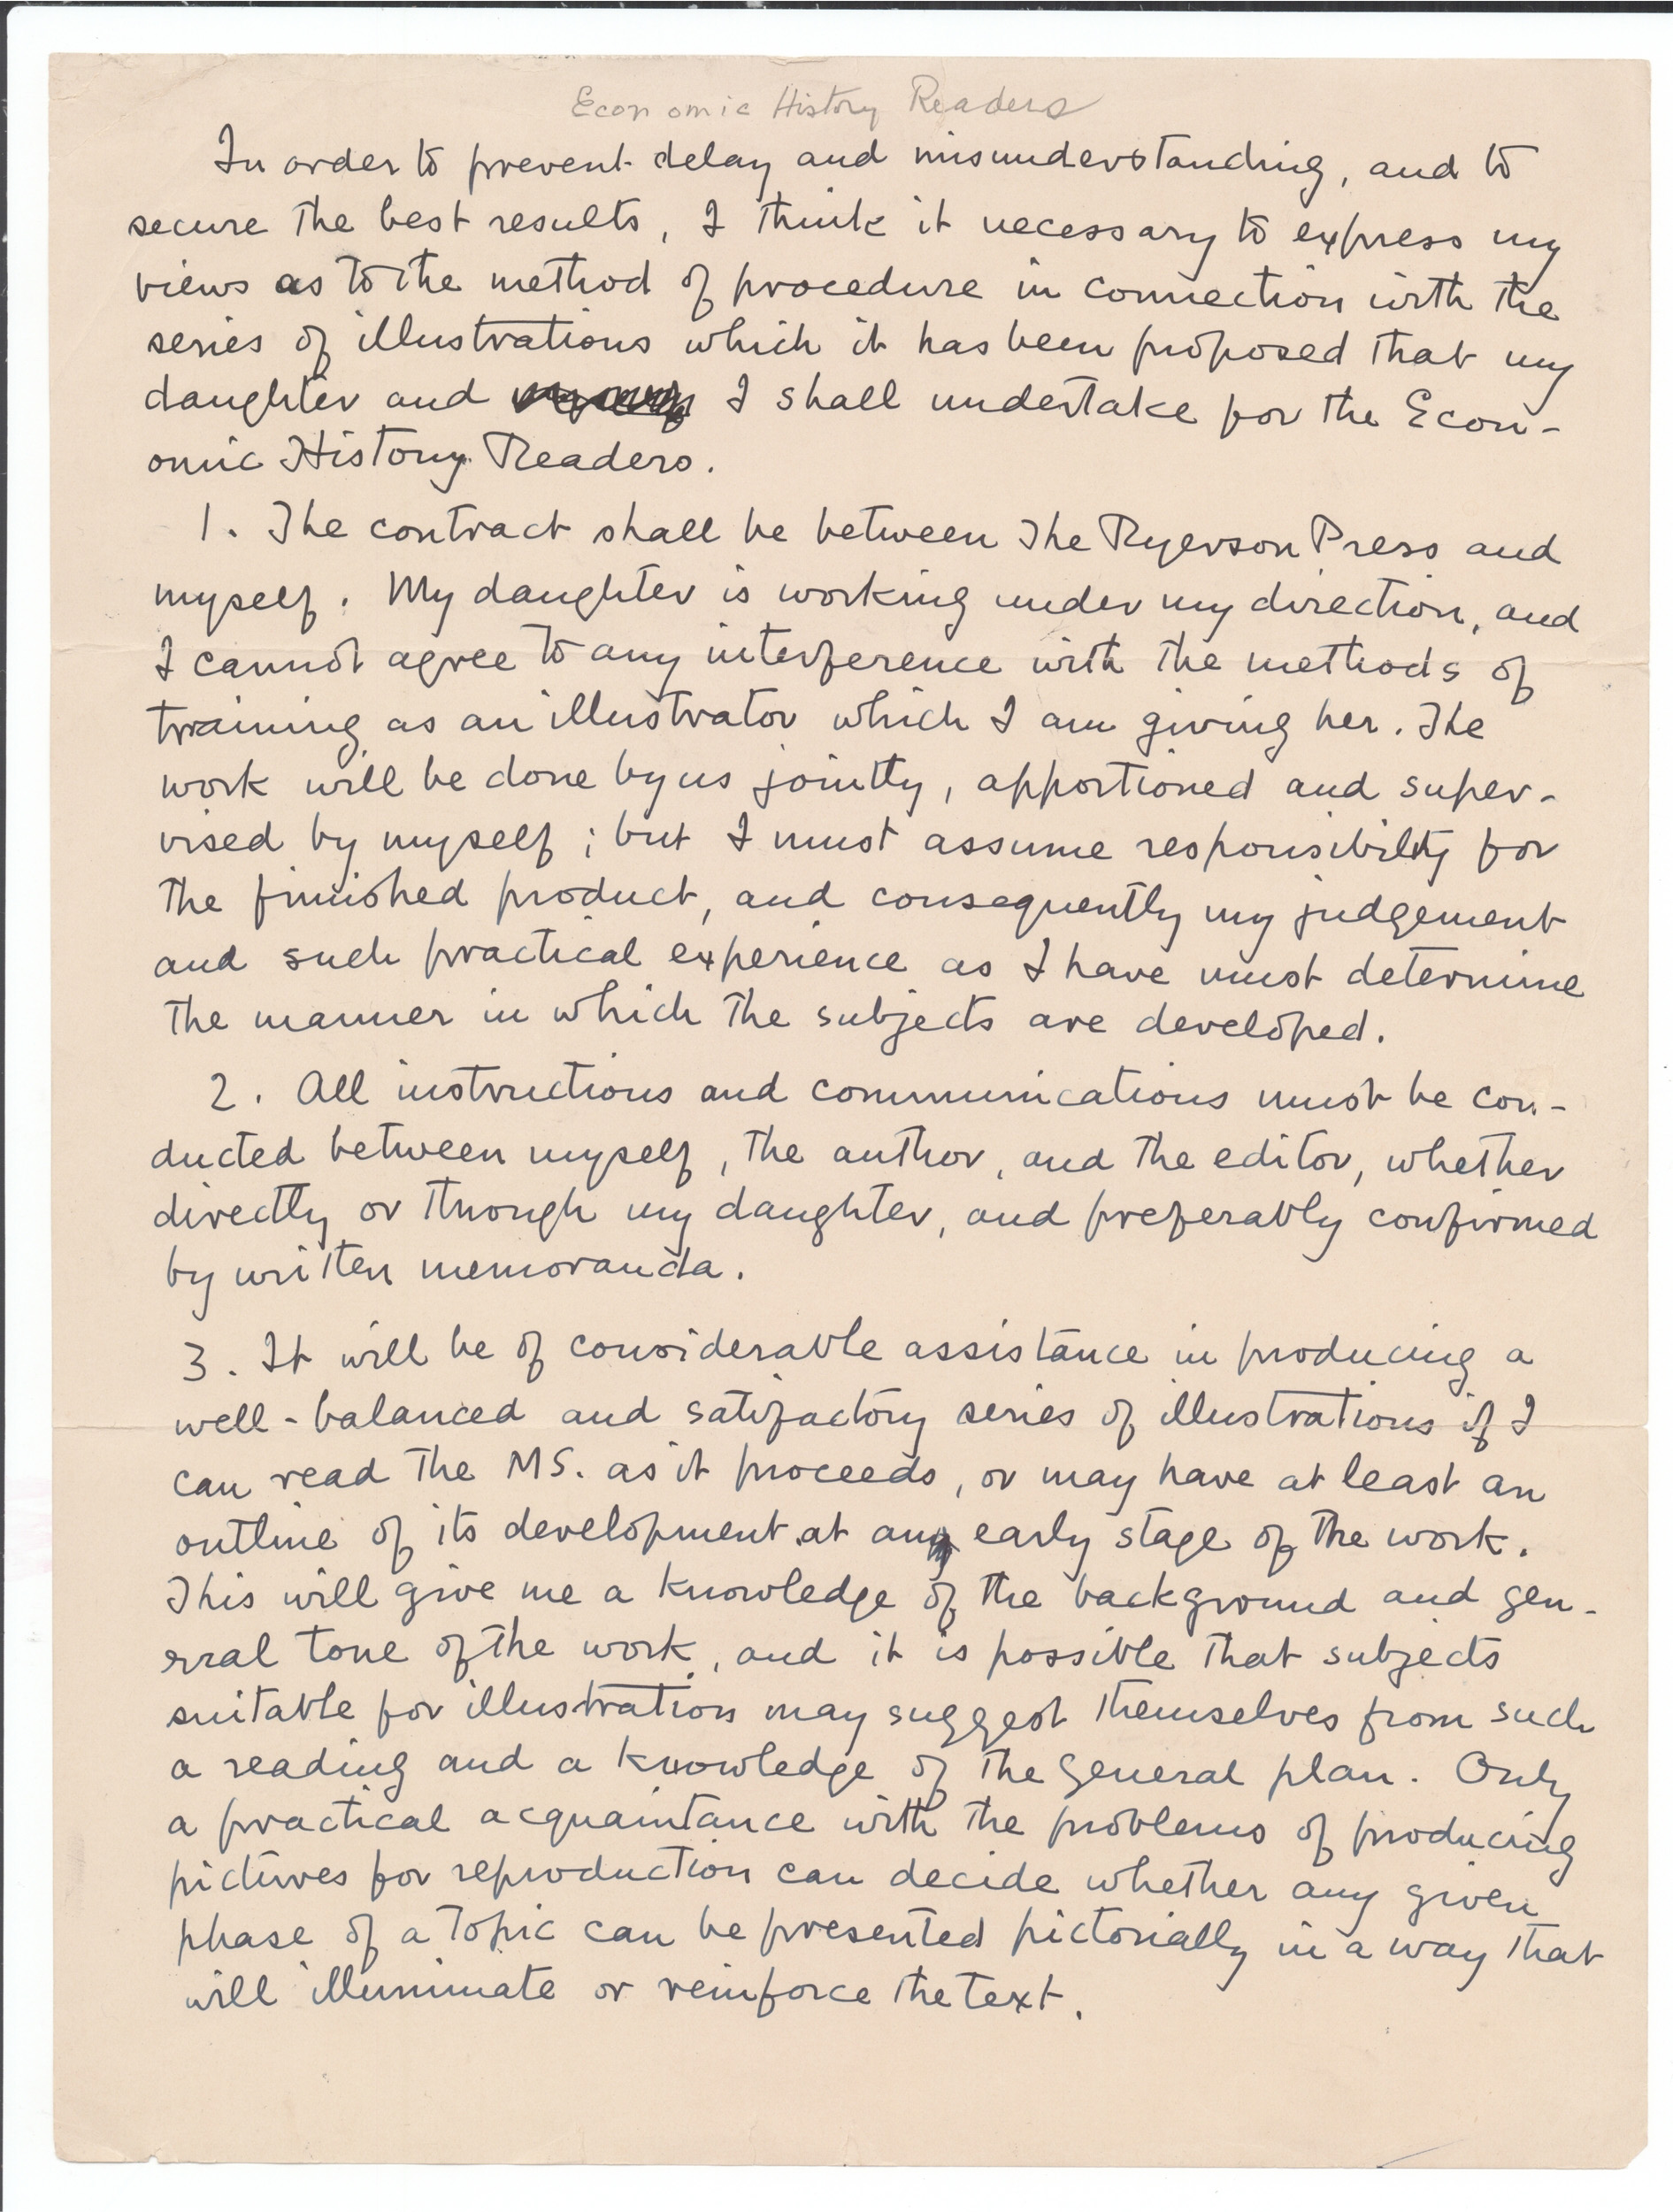 Economic History Readers
In order to prevent delay and misunderstanding, and to
secure the best results, I think it necessary to express my
views as to the method of procedure in connection with the
series of illustrations which it has been proposed that my
daughter and I shall undertake for the Econ-
omic History Readers.
1. The contract shall be between The Ryerson Press and
myself. My daughter is working under my direction, and
I cannot agree to any interference with the methods of
training as an illustrator which I am giving her. The
work will be done by us jointly, apportioned and super-
vised by myself; but I must assume responsibility for
the finished product, and consequently my judgement
and such practical experience as I have must determine
the manner in which the subjects are developed.
2. All instructions and communications must be con-
ducted between myself, the author, and the editor, whether
directly or through my daughter, and preferably confirmed
by written memoranda.
3. It will be of considerable assistance in producing a
well-balanced and satisfactory series of illustrations if I
can read the MS. as it proceeds, or may have at least an
outline of its development at an early stage of the work.
This will give me a knowledge of the background and gen-
eral tone of the work, and it is possible that subjects
suitable for illustration may suggest themselves from such
a reading and a knowledge of the general plan. Only
a practical acquaintance with the problems of producing
pictures for reproduction can decide whether any given
phase of a topic can be presented pictorially in a way that
will illuminate or reinforce the text.